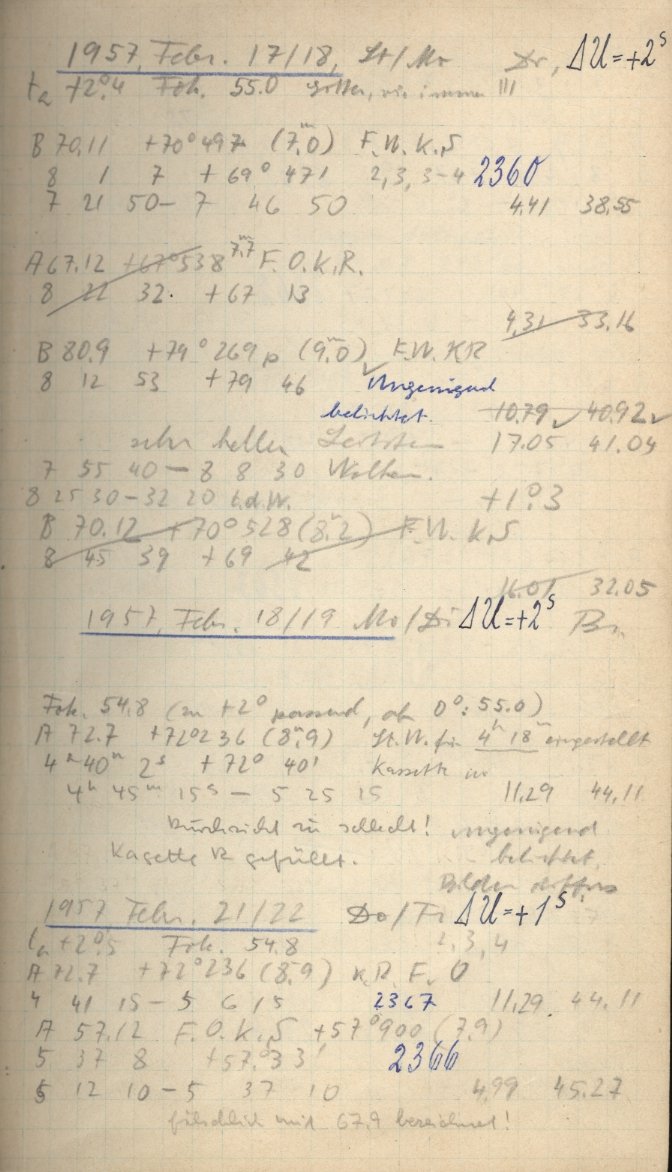 1957, Febr. 17/18, St/Mo Dr, ΔU=+2ˢ
tₐ +2°.4 Fok. 55.0 wie immer !!!
B 70.11 +70°497 (7ᵐ.0) F.W. K.S
8 1 7 +69° 471 2,3,3-4 2360
7 21 50 – 7 46 50 4.41 38.55
A 67.12 +67°538 7ᵐ.7 F.O.K.R.
8 22 32. +67 13
4,31 33.16
B 80.9 +79°269 p (9ᵐ.0) F.W. KR
8 12 53 +79 46 ✓ Ungenügend
belichtet. 10.79 ✓ 40.92 ✓
sehr heller 17.05 41.04
7 55 40 – 8 8 30 Wolken.
8 25 30 – 32 20 b.d.W. +1°.3
B 70.12 +70°528 (8ᵐ.2) F.W. K.S
8 45 39 +69 42
16.01 32.05
1957, Febr. 18/19 Mo/Di ΔU=+2ˢ Br.
Fok. 54.8 (zu +2° passend, ab 0°: 55.0)
A 72.7 +72°236 (8ᵐ.9) St.W. für 4ʰ 18ᵐ eingestellt
4ʰ 40ᵐ 2ˢ +72° 40' Kassette
4ʰ 45ᵐ 15ˢ – 5 25 15 11.29 44.11
Durchsicht zu schlecht! ungenügend
Kassette gefüllt. belichtet,
Bilder diffus
1957 Febr. 21/22 Do/Fr ΔU=+1ˢ.
tₐ +2°.5 Fok. 54.8 2,3,4
A 72.7 +72°236 (8.9) K.R. F. O
4 41 15 – 5 6 15 2367 11.29 44.11
A 57.12 F.O.K.S +57°900 (7.9)
5 37 8 +57.°33' 2366
5 12 10 – 5 37 10 4.99 45.27
fälschlich mit 67.9 bezeichnet!